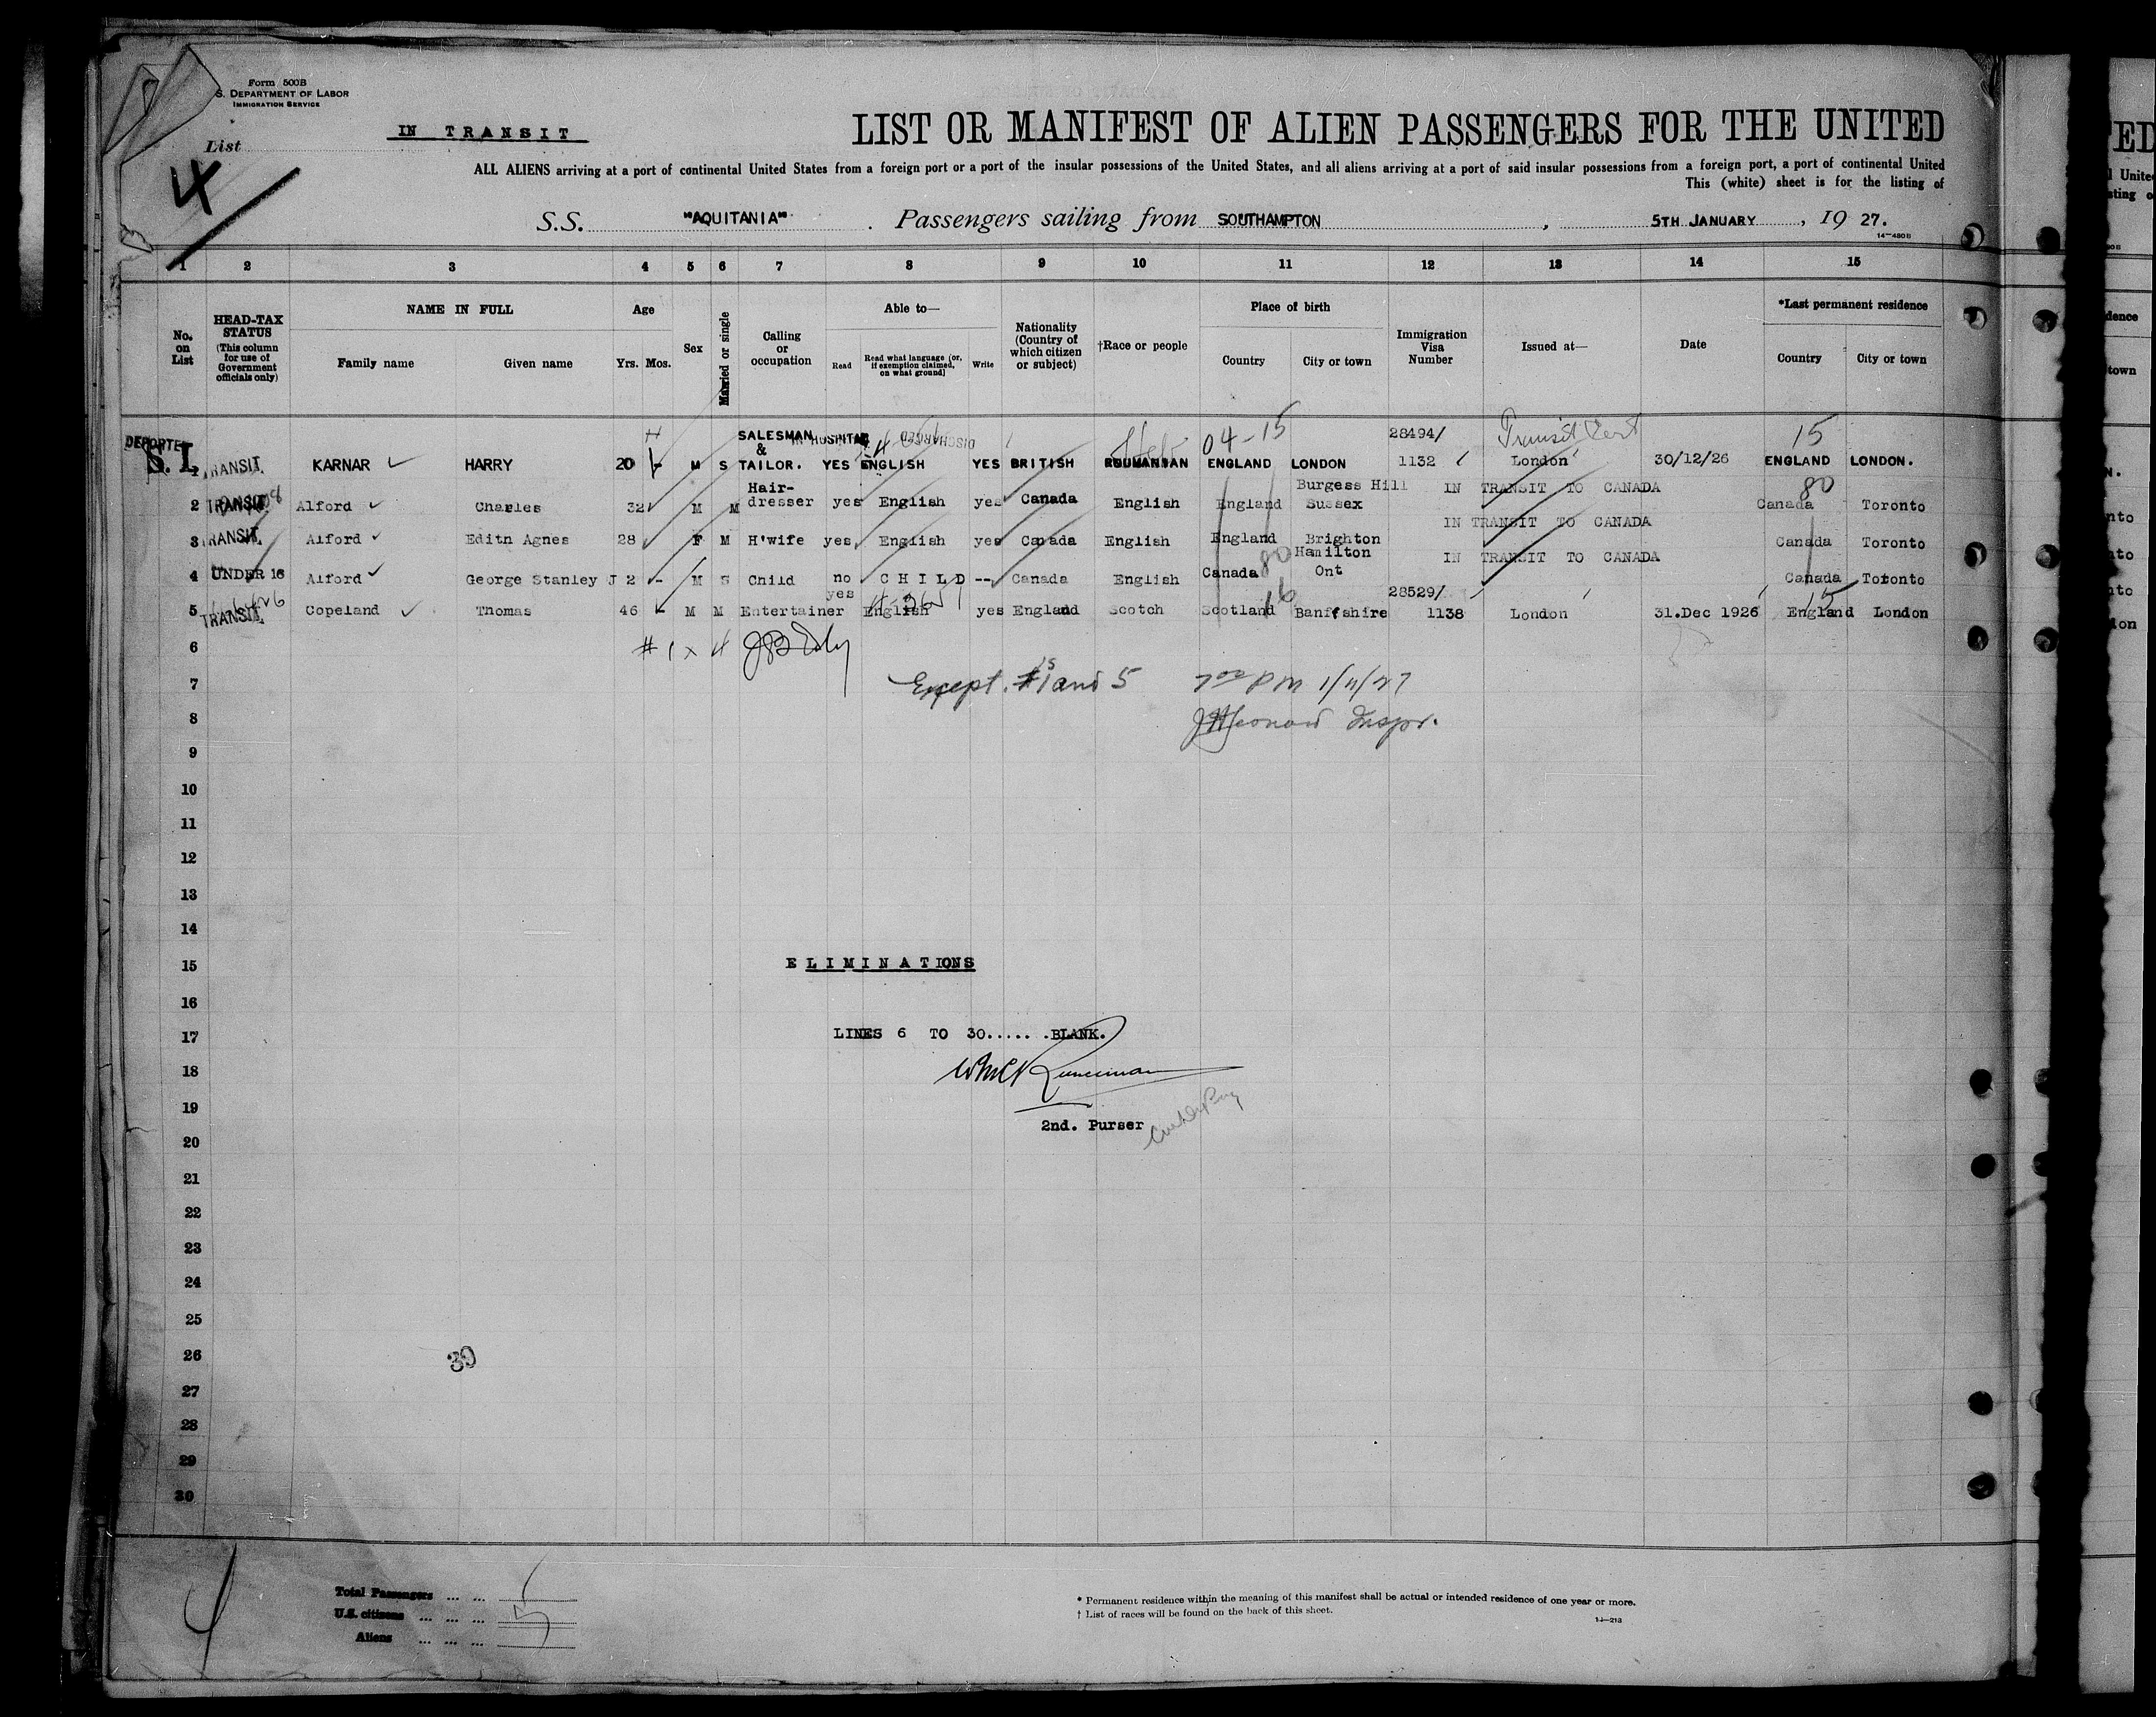 Form 500B
S. DEPARTMENT OF LABOR
IMMIGRATION SERVICE
IN TRANSIT
List
4
LIST OR MANIFEST OF ALIEN PASSENGERS FOR THE UNITED
ALL ALIENS arriving at a port of continental United States from a foreign port or a port of the insular possessions of the United States, and all aliens arriving at a port of said insular possessions from a foreign port, a port of continental United
This (white) sheet is for the listing of
S.S. "AQUITANIA" . Passengers sailing from SOUTHAMPTON , 5TH JANUARY , 19 27.
14-480B
1 2 3 4 5 6 7 8 9 10 11 12 13 14 15
No. on List
HEAD-TAX STATUS (This column for use of Government officials only)
NAME IN FULL
Family name Given name
Age
Yrs. Mos.
Sex
Married or single
Calling or occupation
Able to—
Read
Read what language (or, if exemption claimed, on what ground)
Write
Nationality (Country of which citizen or subject)
†Race or people
Place of birth
Country City or town
Immigration Visa Number
Issued at—
Date
*Last permanent residence
Country City or town
DEPORTED
S. I.
SALESMAN & IN HOSPITAL DISCHARGED 04-15 28494/ Transit Cert 15
1 TRANSIT. KARNAR HARRY 20 - M S TAILOR. YES ENGLISH YES BRITISH ROUMANIAN ENGLAND LONDON 1132 London 30/12/26 ENGLAND LONDON.
Hair- Burgess Hill IN TRANSIT TO CANADA 80
2 TRANSIT Alford Charles 32 M M dresser yes English yes Canada English England Sussex Canada Toronto
IN TRANSIT TO CANADA
3 TRANSIT. Alford Editn Agnes 28 F M H'wife yes English yes Canada English England Brighton Canada Toronto
80 Hamilton IN TRANSIT TO CANADA
4 UNDER 16 Alford George Stanley J 2 - M S Child no CHILD -- Canada English Canada Ont Canada Toronto
yes 16 28529/ 15
5 TRANSIT. Copeland Thomas 46 - M M Entertainer English yes England Scotch Scotland Banffshire 1138 London 31.Dec 1926 England London
6 # 1 x 4
7 Except #'s 1 and 5 7 00 PM 1/11/27
8 Inspr.
9
10
11
12
13
14
15 ELIMINATIONS
16
17 LINES 6 TO 30......BLANK.
18
19
2nd. Purser
20
21
22
23
24
25
26 39
27
28
29
30
4
Total Passengers ... ...
U.S. citizens ... ... ... 5
Aliens ... ... ...
* Permanent residence within the meaning of this manifest shall be actual or intended residence of one year or more.
† List of races will be found on the back of this sheet.
14-213